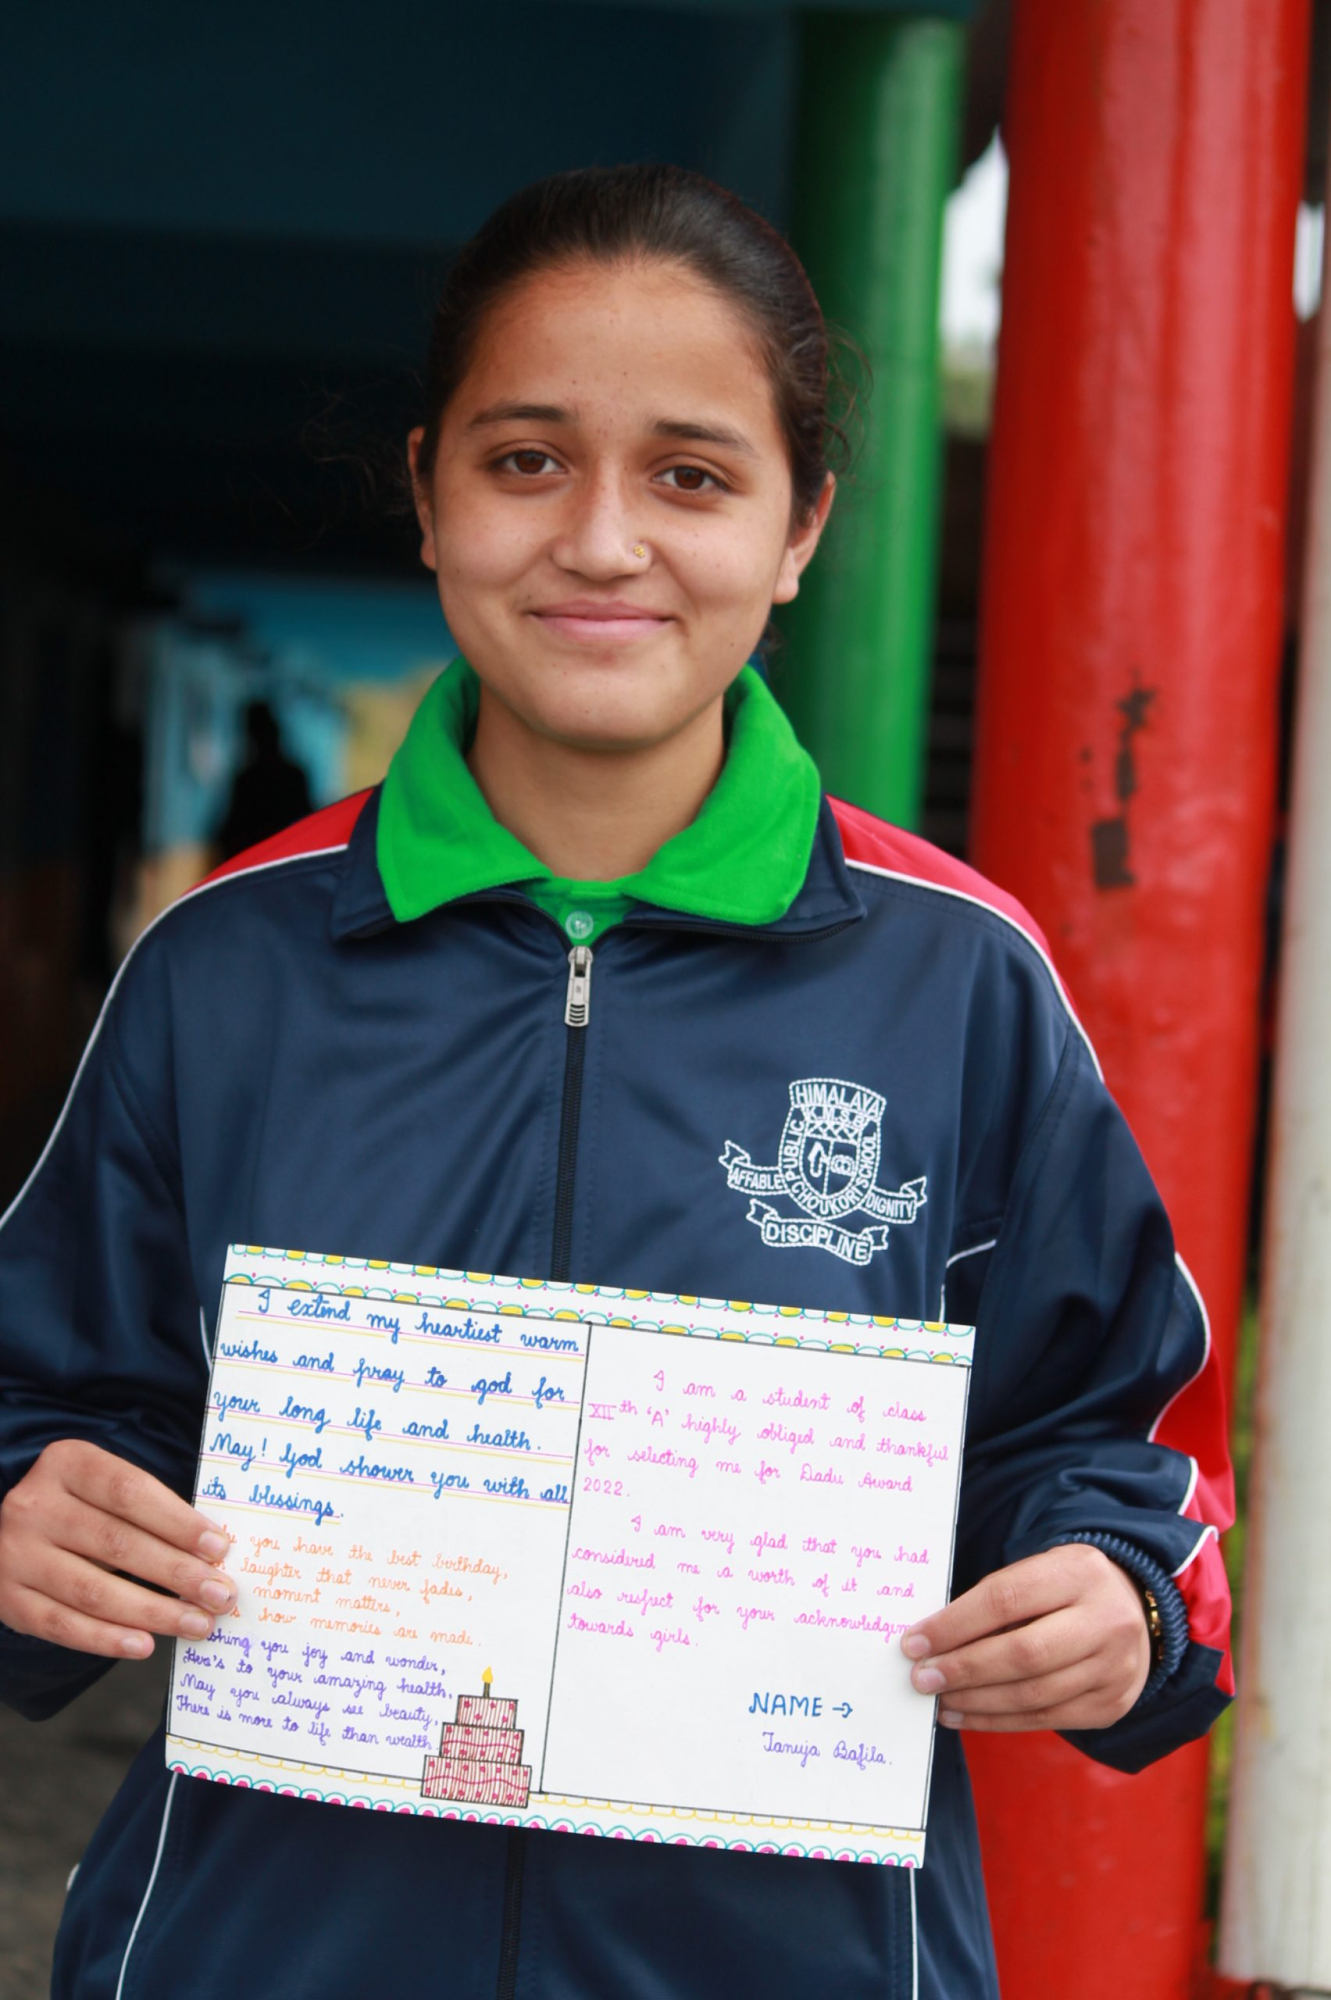 HIMALAYA
K.M.S.B
PUBLIC SCHOOL
CHOUKORI
AFFABLE
DIGNITY
DISCIPLINE
I extend my heartiest warm
wishes and pray to god for
your long life and health.
May! God shower you with all
its blessings.
you have the best birthday,
laughter that never fades,
moment matters,
how memories are made.
shing you joy and wonder,
Here's to your amazing health,
May you always see beauty,
There is more to life than wealth.
I am a student of class
XIIth 'A' highly obliged and thankful
for selecting me for Dadu Award
2022.
I am very glad that you had
considered me a worth of it and
also respect for your acknowledgem
towards girls.
NAME →
Tanuja Bafila.